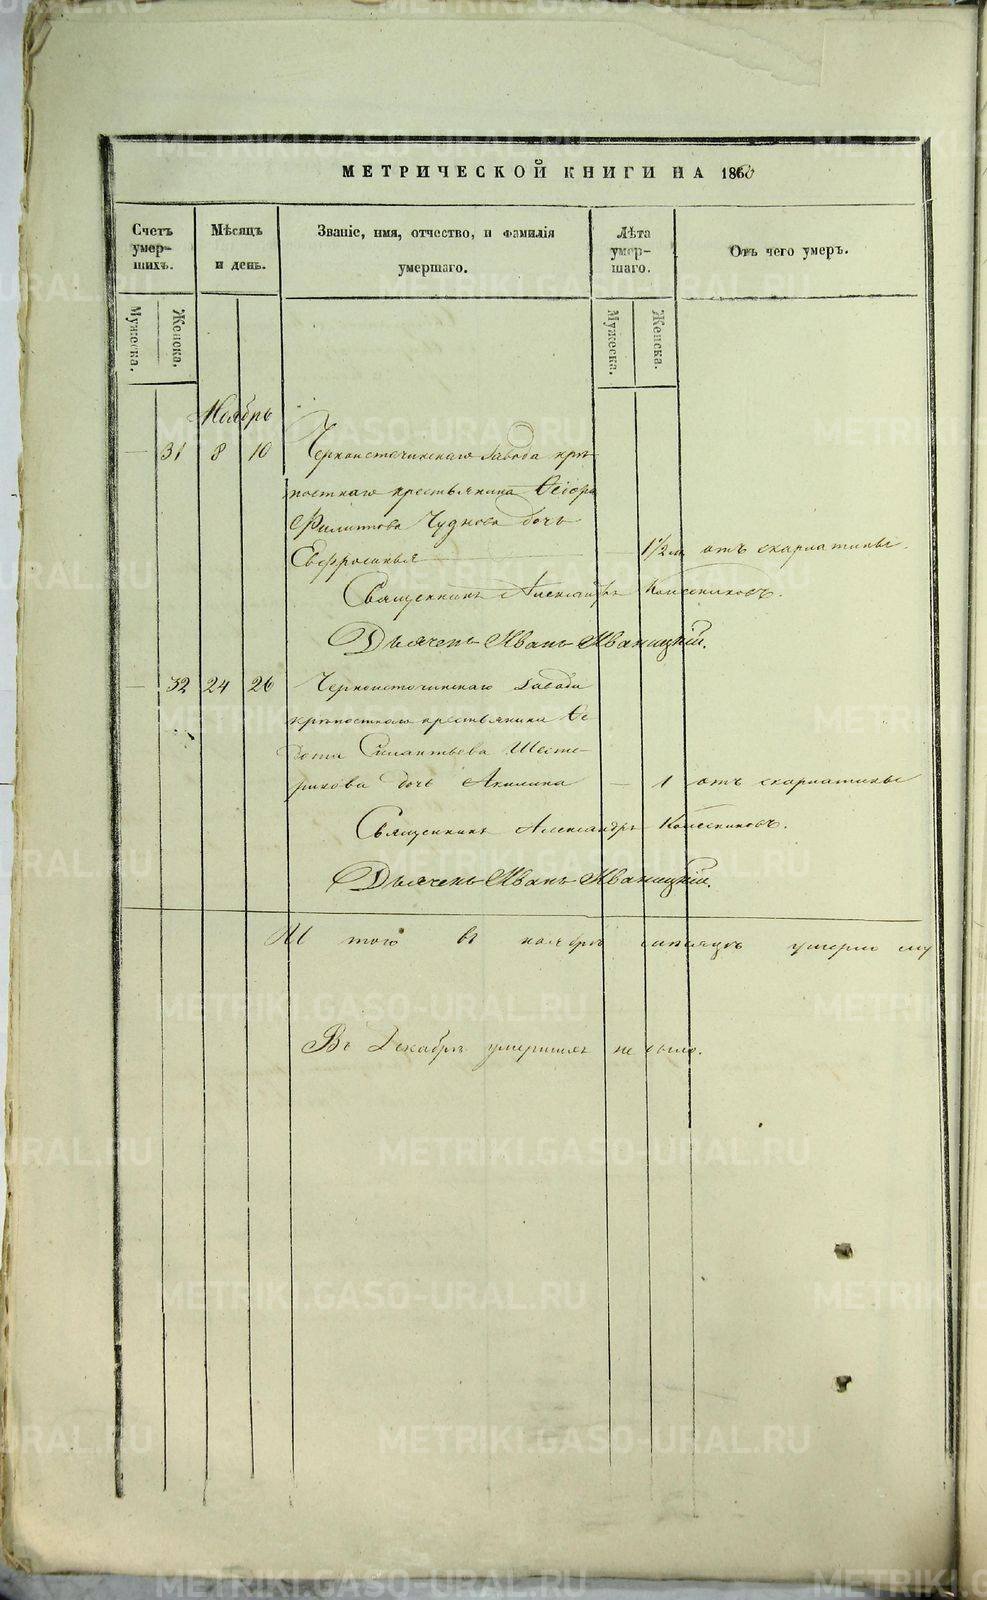 МЕТРИЧЕСКОЙ КНИГИ НА 1860
Счетъ умер-шихъ.
Мѣсяцъ и день.
Званіе, имя, отчество, и фамилія умершаго.
Лѣта умер-шаго.
Отъ чего умеръ.
Мужеска.
Женска.
Мужеска.
Женска.
Ноябрь
— 31 8 10 Черноисточинскаго Завода крѣ-
постнаго крестьянина
Филиппова Чуднова дочь
Евфросинья — 1½ отъ скарлатины.
Священникъ Александръ Колесниковъ.
Дьячекъ Иванъ Иваницкій.
— 32 24 26 Черноисточинскаго Завода
крѣпостнаго крестьянина Ѳе
дота Силантьева Шесте-
рикова дочь Акилина — 1 отъ скарлатины
Священникъ Александръ Колесниковъ.
Дьячекъ Иванъ Иваницкій.
И того въ ноябрѣ мѣсяцѣ умерло
Въ Декабрѣ умершихъ не было.
METRIKI.GASO-URAL.RU